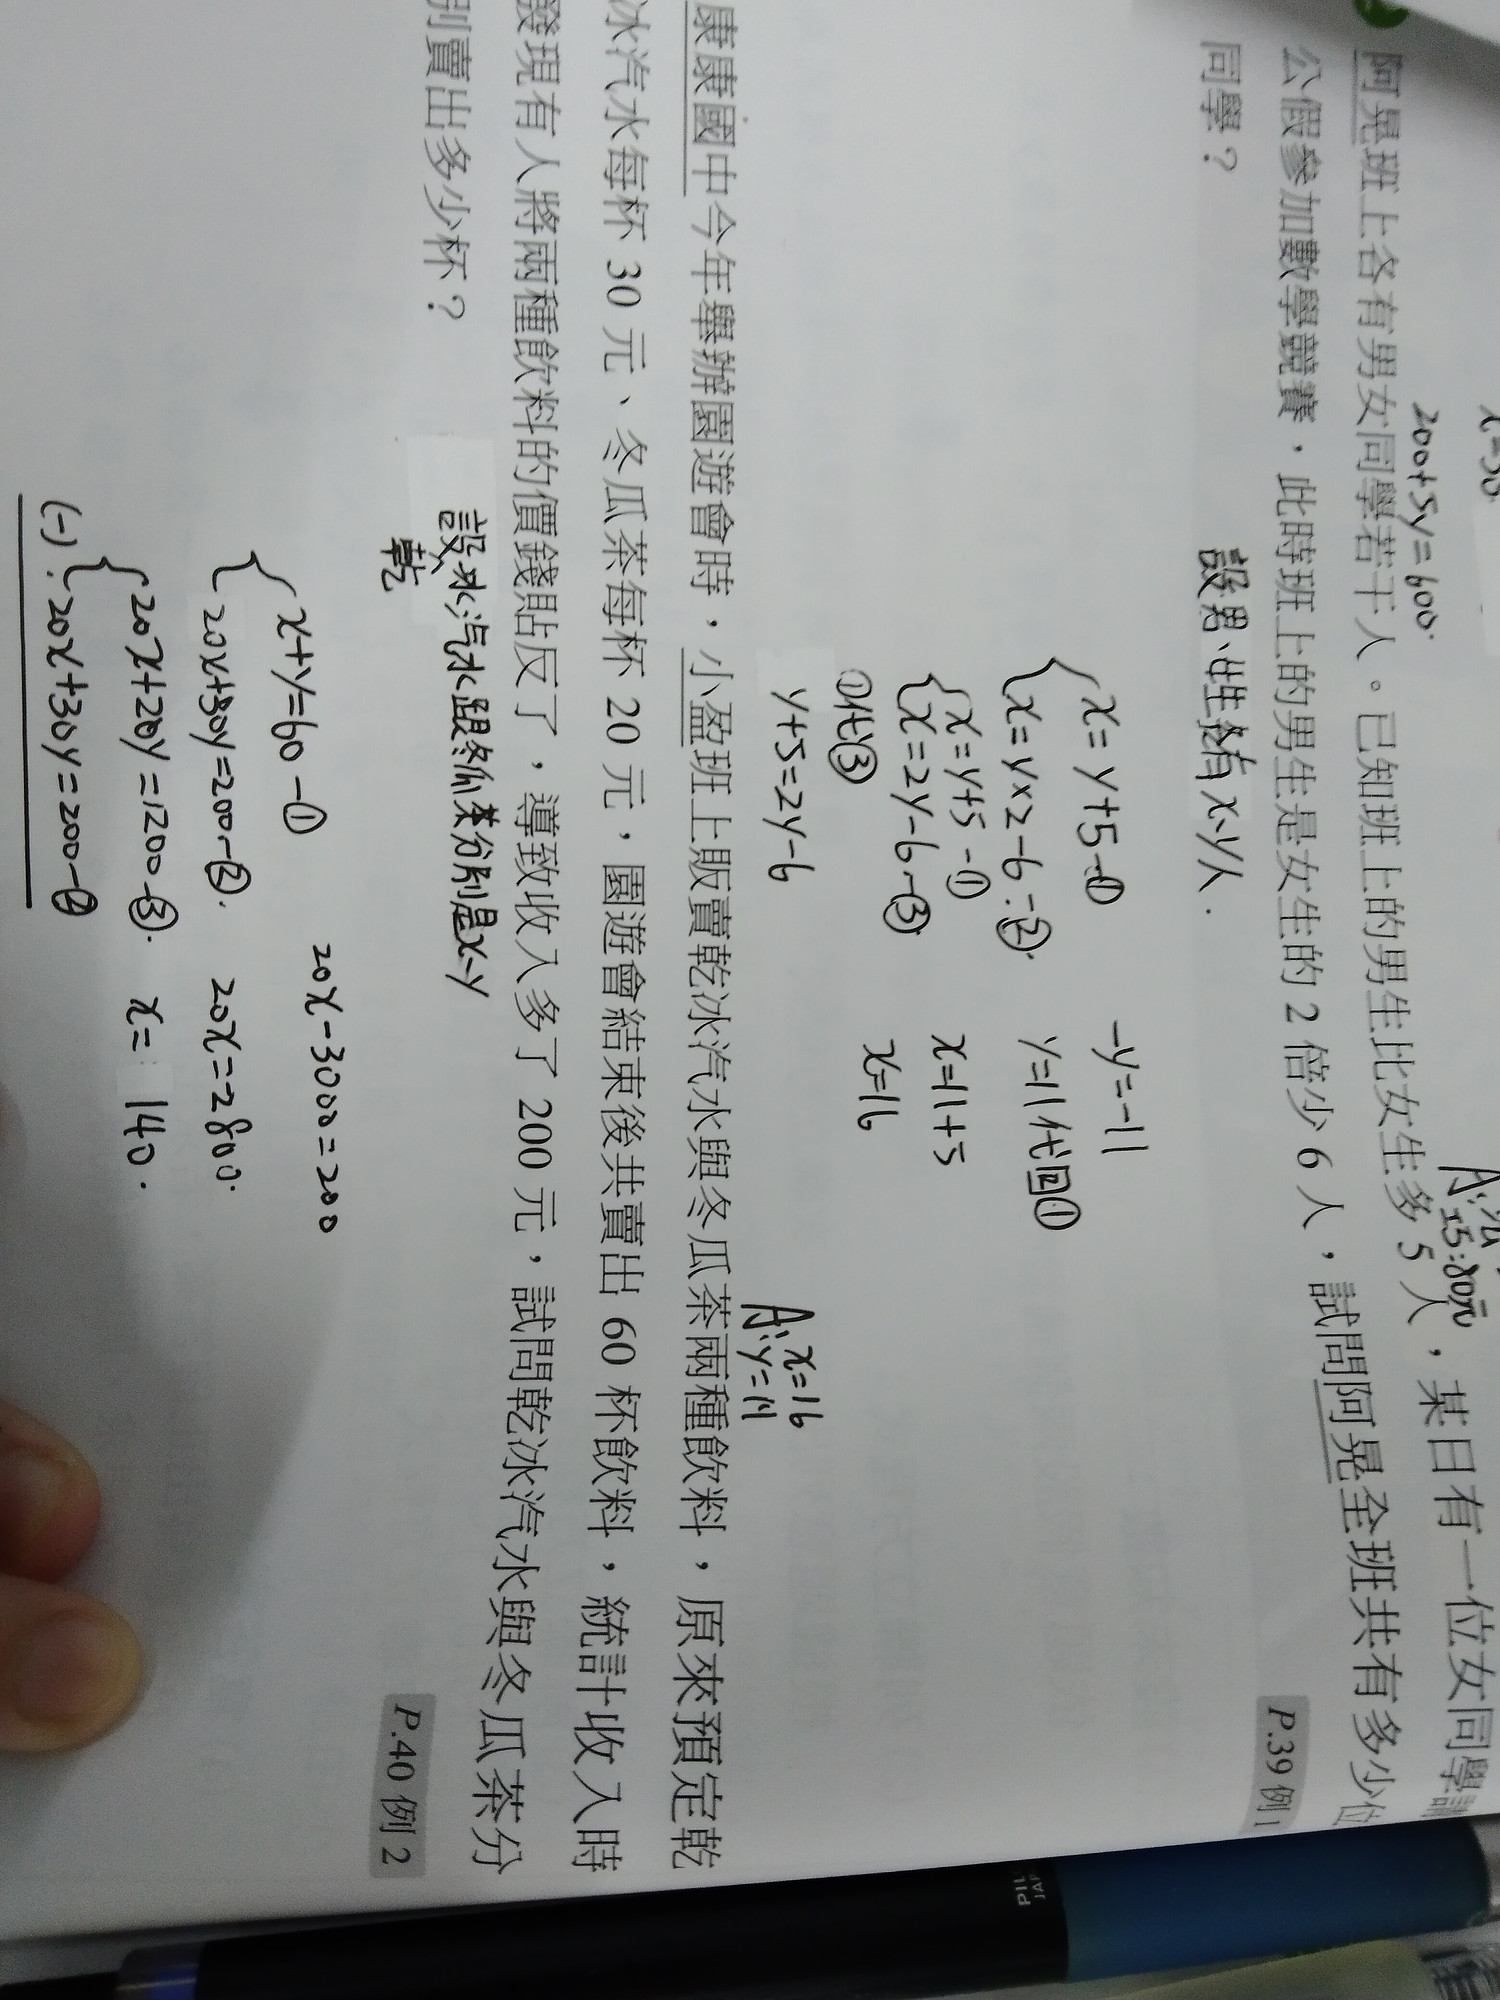 x=30
200+5y=600.
阿晃班上各有男女同學若干人。已知班上的男生比女生多 5 人，某日有一位女同學請
公假參加數學競賽，此時班上的男生是女生的 2 倍少 6 人，試問阿晃全班共有多少位
同學？
P.39 例 1
設男、女生有x、y人.
x=y+5-①
x=y×2-6-②.
x=y+5-①
x=2y-6-③.
①代入③
y+5=2y-6
-y=-11
y=11代回①
x=11+5
x=16
A: x=16
y=11
康康國中今年舉辦園遊會時，小盈班上販賣乾冰汽水與冬瓜茶兩種飲料，原來預定乾
冰汽水每杯 30 元、冬瓜茶每杯 20 元，園遊會結束後共賣出 60 杯飲料，統計收入時
發現有人將兩種飲料的價錢貼反了，導致收入多了 200 元，試問乾冰汽水與冬瓜茶分
別賣出多少杯？
P.40 例 2
設乾冰汽水跟冬瓜茶分別是x、y
x+y=60-①
20x+30y=200-②.
20x+20y=1200-③.
(-) 20x+30y=200-②
20x-3000=200
20x=2800.
x= 140.
PIL
JAP